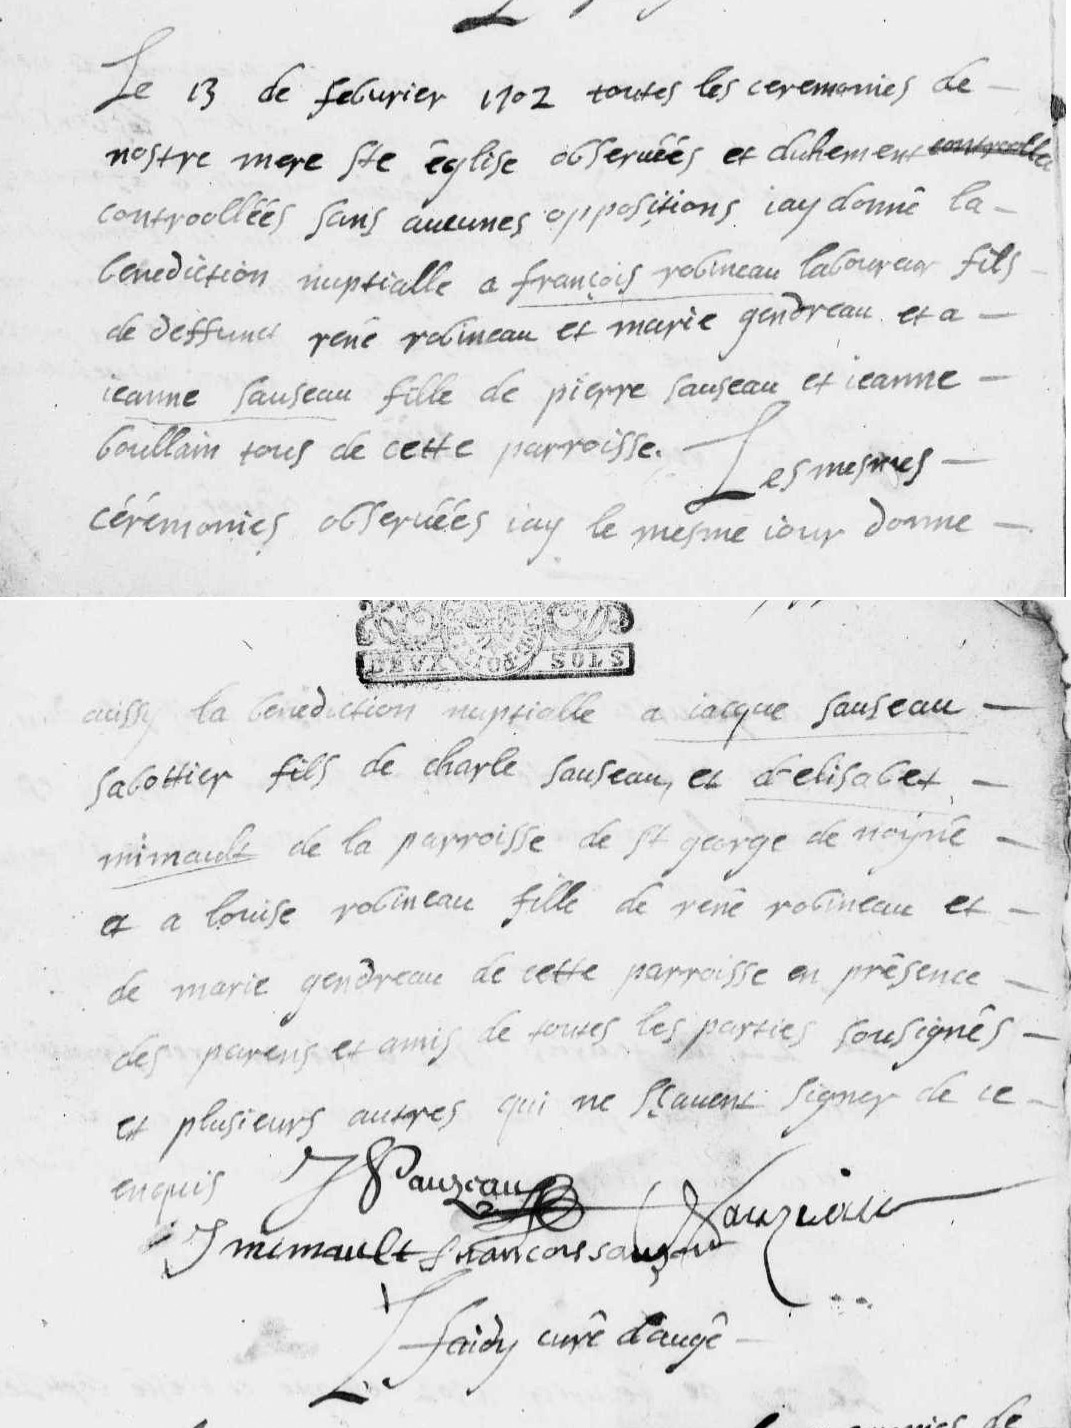 Le 13 de feburier 1702 toutes les ceremonies de
nostre mere ste église obseruéés et duhement controollee
controolléés sans aucunes oppositions iay donné la
benediction nuptialle a françois robineau laboureur fils
de deffunct rené robineau et marie gendreau et a
ieanne sauseau fille de pierre sauseau et ieanne
boullain tous de cette parroisse. Les mesmes
cérémonies obseruéés iay le mesme iour donne
aussy la benediction nuptialle a iacque sauseau
sabottier fils de charle sauseau, et delisabet
mimault de la parroisse de st george de noiyné
et a louise robineau fille de rené robineau et
de marie gendreau de cette parroisse en présence
des parens et amis de toutes les parties sousignés
et plusieurs autres qui ne sçauent signer de ce
enquis J Sauzeau Sauzeau
J mimault francois sauzeau
L faidy curé daugé
DEUX SOLS